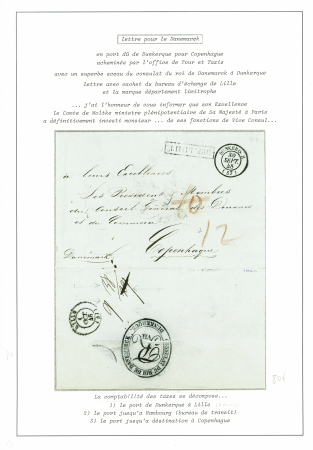 lettre pour le Danemarck
en port dû de Dunkerque pour Copenhague
acheminée par l'office de Tour et Taxis
avec un superbe sceau du consulat du roi de Danemarck à Dunkerque
lettre avec cachet du bureau d'échange de Lille
et la marque département limitrophe
... j'ai l'honneur de vous informer que son Excellence
le Comte de Moltke ministre plénipotentiaire de Sa Majesté à Paris
a définitivement investi monsieur ... de ses fonctions de Vice Consul...
à leurs Excellences,
Les Président & Membres
du Conseil Général des Douanes
et du Commerce
Copenhague
Danemark
12
La comptabilité des taxes se décompose...
1) le port de Dunkerque à Lille
2) le port jusqu'à Hambourg (bureau de transit)
3) le port jusqu'à destination à Copenhague